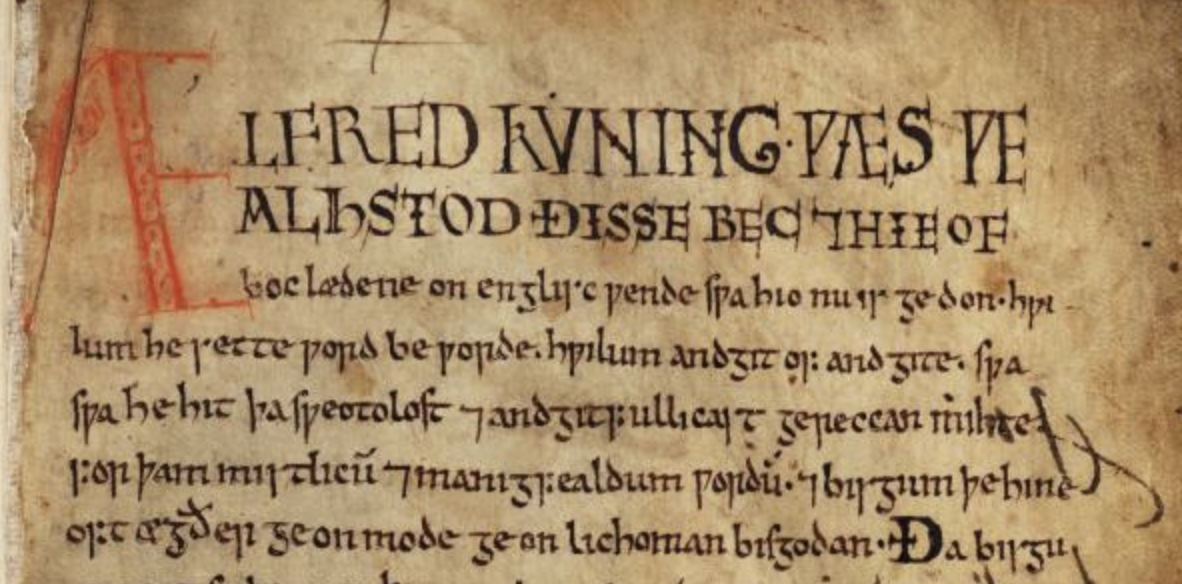 ÆLFRED KVNING·ǷÆS ǷE
ALHSTOD ÐISSE BEC ⁊HIE OF
boc lædene on englisc ƿende sƿa hio nu is gedon·hƿi
lum he sette ƿord be ƿorde. hƿilum andgit of andgite. sƿa
sƿa he hit þa sƿeotolost ⁊ andgitfullicast gereccan mihte
for þam mistlicū ⁊manigfealdum ƿordū·⁊ bisgum þe hine
oft ægðer ge on mode ge on lichoman bisgodan· Ða bisgu